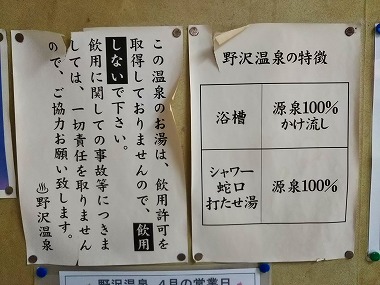 この温泉のお湯は、飲用許可を
取得しておりませんので、飲用
しないで下さい。
飲用に関しての事故等につきま
しては、一切責任を取りません
ので、ご協力お願い致します。
♨野沢温泉
野沢温泉の特徴
浴槽
源泉100%
かけ流し
シャワー
蛇口
打たせ湯
源泉100%
野沢温泉 4月の営業日